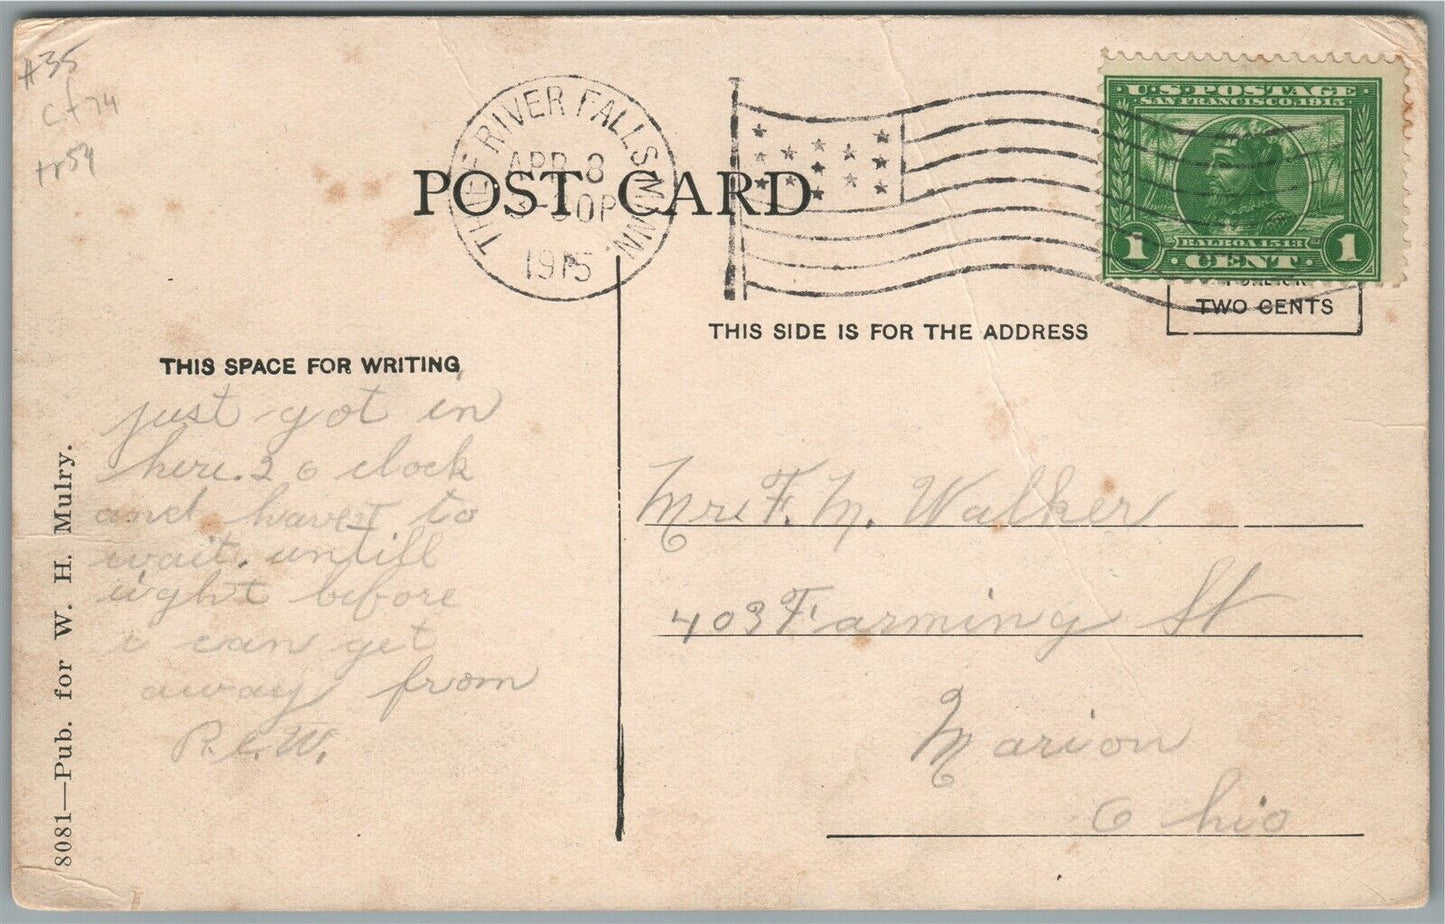 #35
cf74
tr54
THIEF RIVER FALLS MINN.
APR 8
30P
1915
POST CARD
U.S. POSTAGE
SAN FRANCISCO, 1915
BALBOA 1513
1 CENT 1
TWO CENTS
THIS SIDE IS FOR THE ADDRESS
THIS SPACE FOR WRITING
just got in
here. 2 o clock
and havent to
wait. untill
eight before
i can get
away from
R.C.W.
8081—Pub. for W. H. Mulry.
Mrs F. M. Walker
409 Farming St
Marion
Ohio